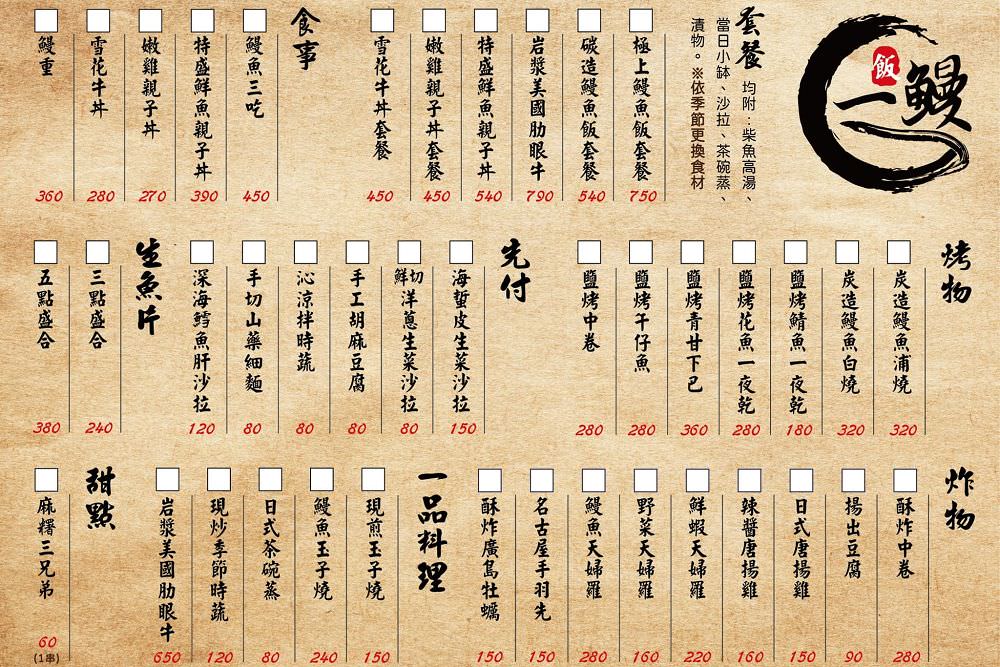 鰻
一
飯
套餐
均附：柴魚高湯、
當日小缽、沙拉、茶碗蒸、
漬物。※依季節更換食材
極上鰻魚飯套餐 750
碳造鰻魚飯套餐 540
岩漿美國肋眼牛 790
特盛鮮魚親子丼 540
嫩雞親子丼套餐 450
雪花牛丼套餐 450
食事
鰻魚三吃 450
特盛鮮魚親子丼 390
嫩雞親子丼 270
雪花牛丼 280
鰻重 360
烤物
炭造鰻魚浦燒 320
炭造鰻魚白燒 320
鹽烤鯖魚一夜乾 180
鹽烤花魚一夜乾 280
鹽烤青甘下巴 360
鹽烤午仔魚 280
鹽烤中卷 280
先付
海蜇皮生菜沙拉 150
鮮切洋蔥生菜沙拉 80
手工胡麻豆腐 80
沁涼拌時蔬 80
手切山藥細麵 80
深海鱈魚肝沙拉 120
生魚片
三點盛合 240
五點盛合 380
炸物
酥炸中卷 280
揚出豆腐 90
日式唐揚雞 150
辣醬唐揚雞 160
鮮蝦天婦羅 220
野菜天婦羅 160
鰻魚天婦羅 280
名古屋手羽先 150
酥炸廣島牡蠣 150
一品料理
現煎玉子燒 150
鰻魚玉子燒 240
日式茶碗蒸 80
現炒季節時蔬 120
岩漿美國肋眼牛 650
甜點
麻糬三兄弟 60
(1串)